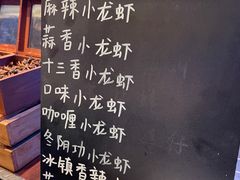 麻辣小龙虾
蒜香小龙虾
十三香小龙虾
口味小龙虾
咖喱小龙虾
冬阴功小龙虾
冰镇香辣